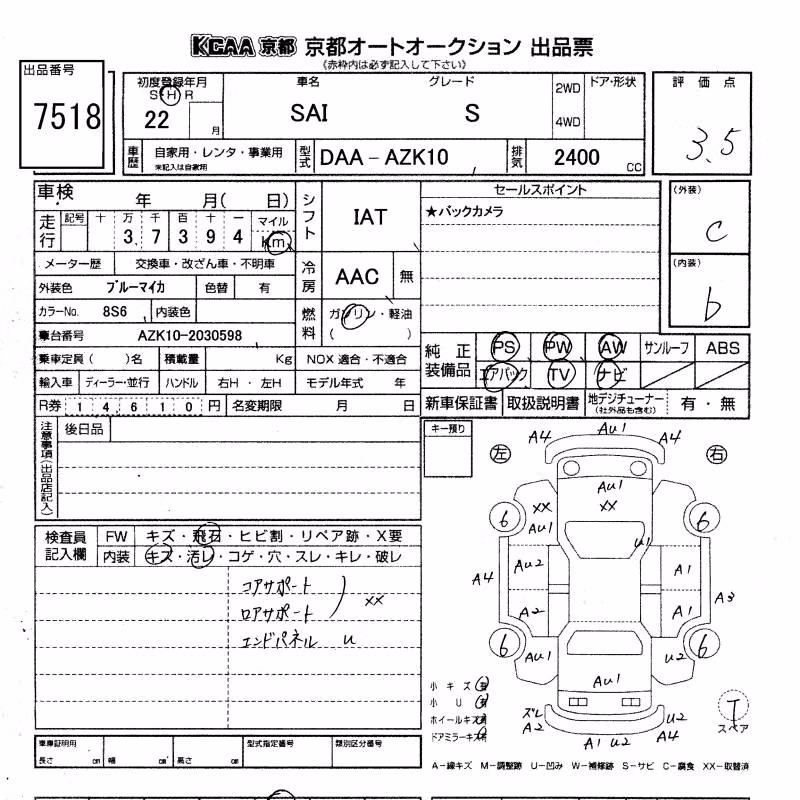 KCAA 京都 京都オートオークション 出品票
(赤枠内は必ず記入して下さい)
出品番号
7518
初度登録年月
S・H・R
22 月
車名
SAI
グレード
S
2WD
4WD
ドア・形状
評価点
3.5
車歴
自家用・レンタ・事業用
未記入は自家用
型式
DAA-AZK10
排気
2400 CC
車検 年 月( 日)
走行 記号 十 万 千 百 十 一 マイル
3.7 3 9 4 km
シフト
IAT
セールスポイント
★バックカメラ
(外装)
C
(内装)
b
メーター歴 交換車・改ざん車・不明車
冷房
AAC 無
外装色 ブルーマイカ 色替 有
カラーNo. 8S6 内装色
燃料
ガソリン・軽油
( )
車台番号 AZK10-2030598
乗車定員( )名 積載量 Kg NOX 適合・不適合
輸入車 ディーラー・並行 ハンドル 右H・左H モデル年式 年
R券 14610円 名変期限 月 日
純正装備品
PS PW AW サンルーフ ABS
エアバック TV ナビ
新車保証書 取扱説明書 地デジチューナー(社外品も含む) 有・無
注意事項(出品店記入)
後日品
キー預り
左
右
A4 AU1 A4
AU1
XX XX
AU1
U1
6 6
AU2 A1
A4 A3
A2 A1
6 6
AU1 U2
AU1
ズレ
A2
U2
A4
A1 U2
T
スペア
検査員記入欄
FW キズ・飛石・ヒビ割・リペア跡・X要
内装 キズ・汚レ・コゲ・穴・スレ・キレ・破レ
コアサポート
ロアサポート
XX
エンドパネル U
小キズ 有
小U 有
ホイールキズ 有
ドアミラーキズ 有
車庫証明用
長さ cm 幅 cm 高さ cm
型式指定番号
類別区分番号
A-線キズ M-調整跡 U-凹み W-補修跡 S-サビ C-腐食 XX-取替済